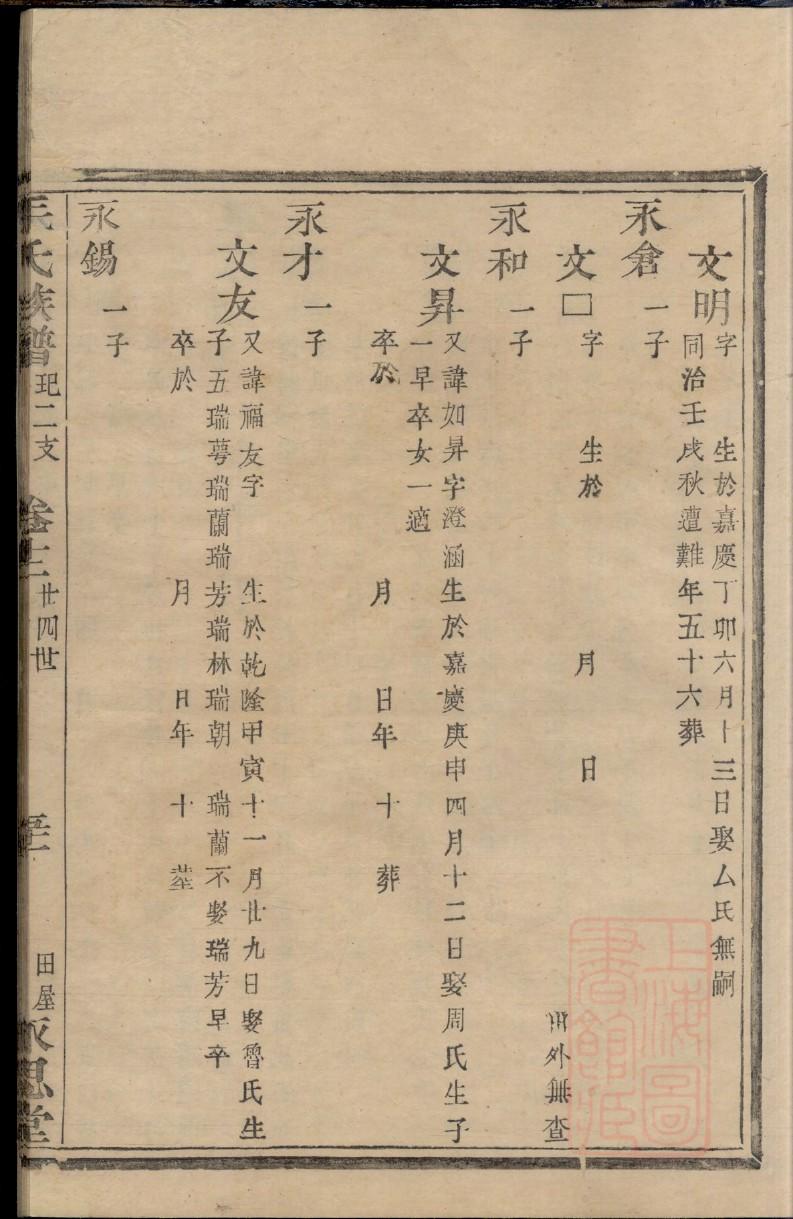 文明字 生於嘉慶丁卯六月十三日娶厶氏無嗣
同治壬戌秋遭難年五十六葬
永倉一子
文□字 生於 月 日
出外無查
永和一子
文昇又諱如昇字澄涵生於嘉慶庚申四月十二日娶周氏生子
一早卒女一適
卒於 月 日年 十 葬
永才一子
文友又諱福友字 生於乾隆甲寅十一月廿九日娶魯氏生
子五瑞萼瑞蘭瑞芳瑞林瑞朝 瑞蘭不娶瑞芳早卒
卒於 月 日年 十 葬
永錫一子
氏族譜 玘二支 卷 廿四世 田屋 永思堂
上海圖書館藏